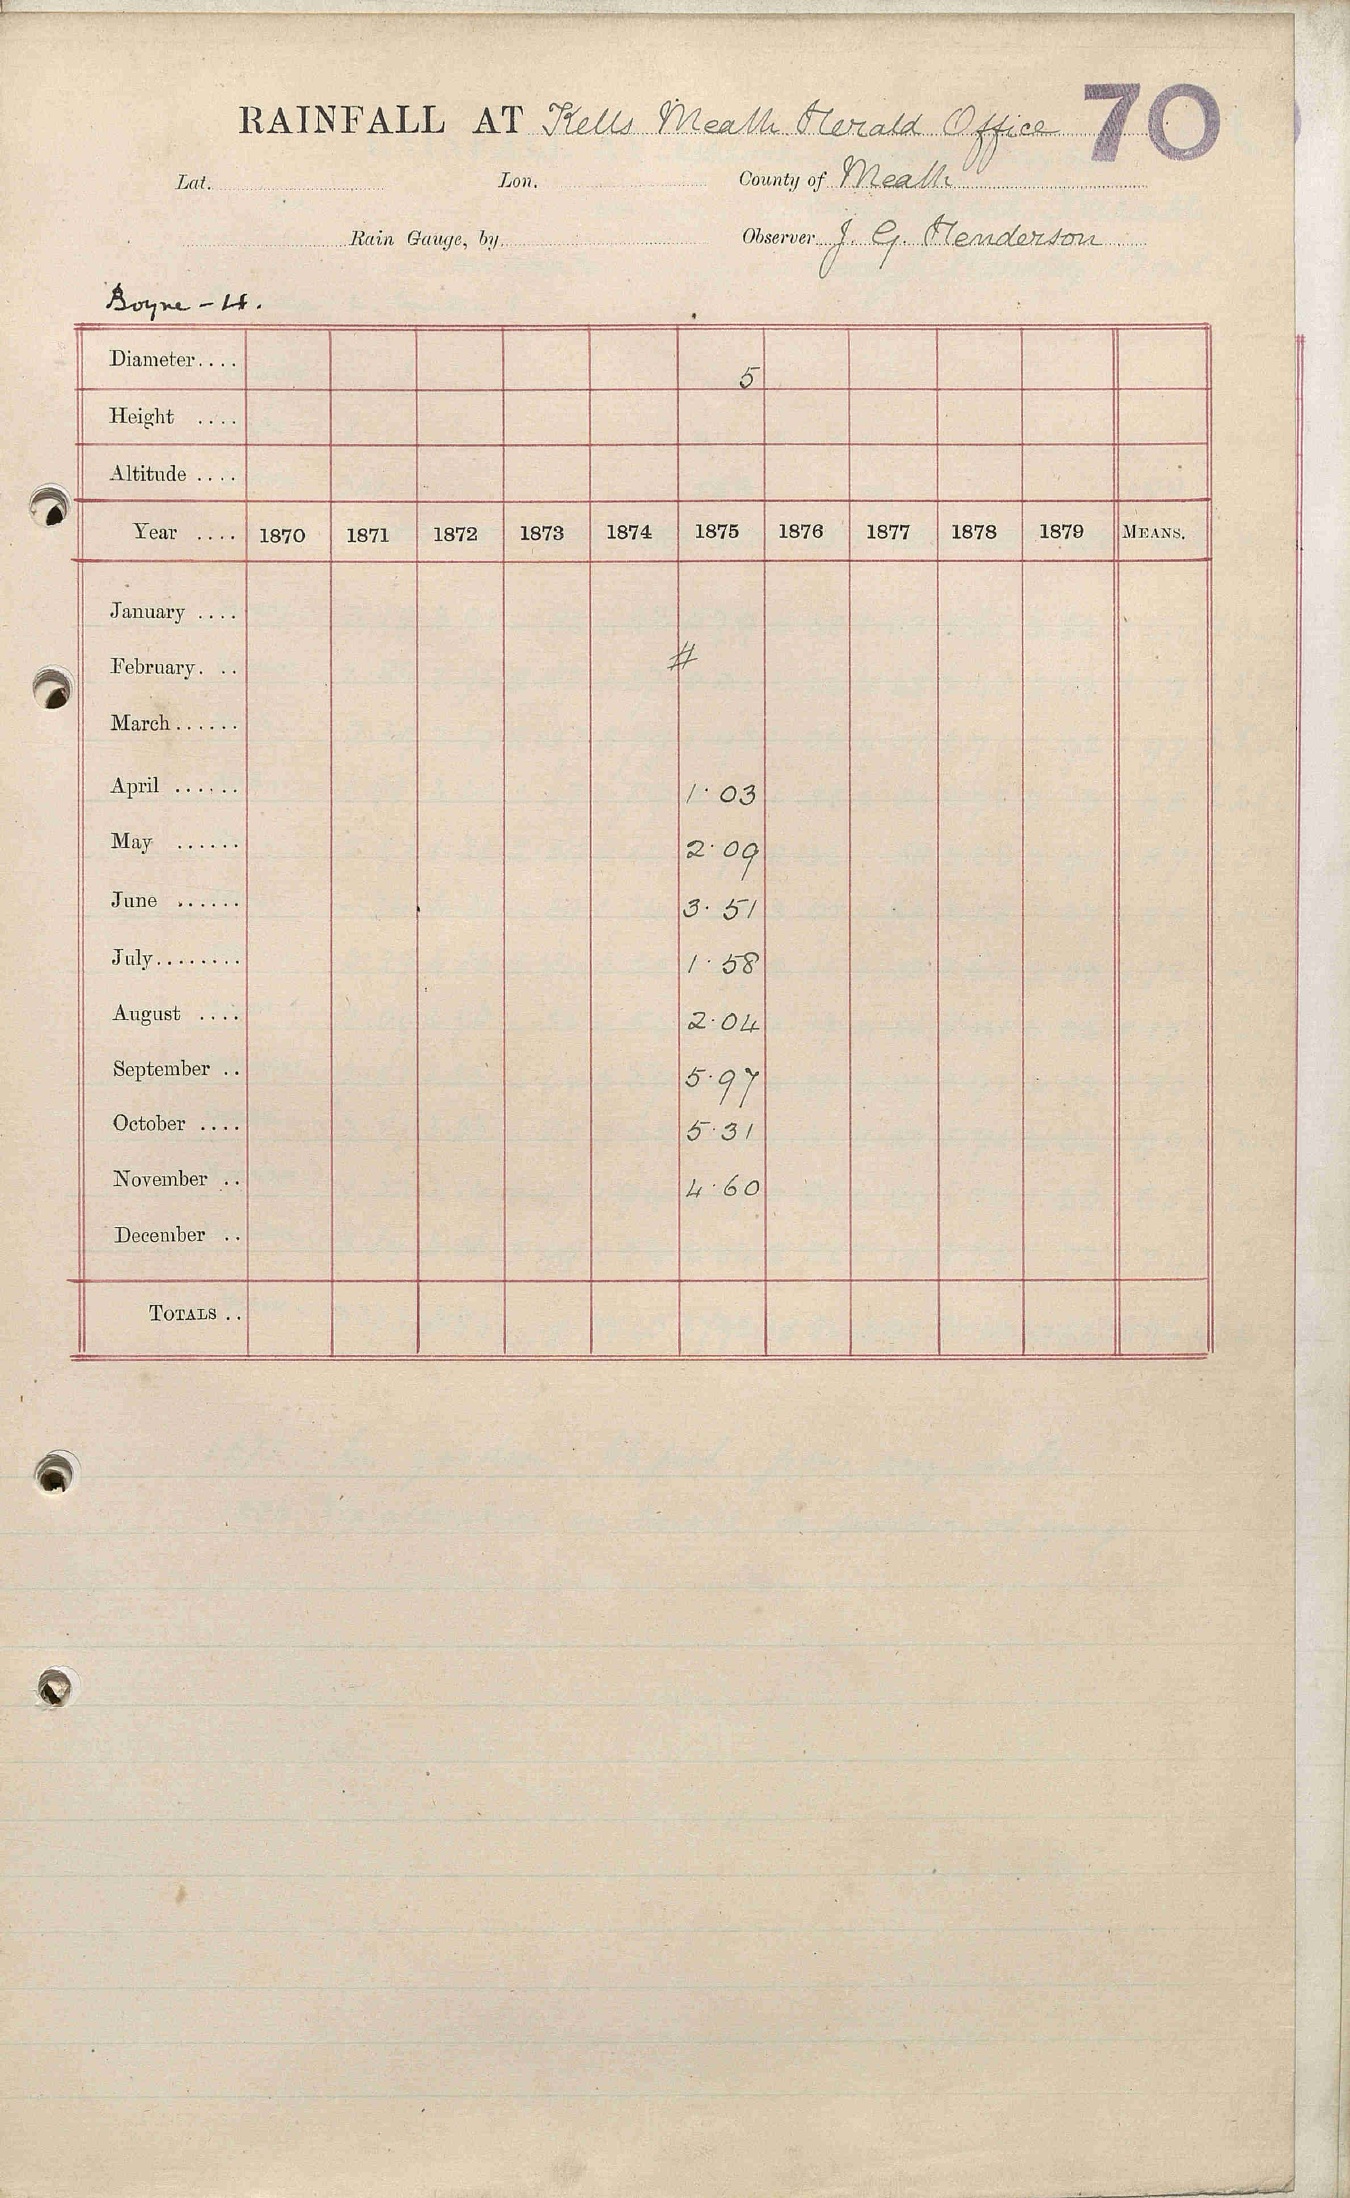 RAINFALL AT Kells Meath Herald Office 70
Lat. Lon. County of Meath
Rain Gauge, by Observer J. G. Henderson
Boyne - 4.
Diameter.... 5
Height ....
Altitude ....
Year .... 1870 1871 1872 1873 1874 1875 1876 1877 1878 1879 MEANS.
January ....
February. .. #
March......
April ...... 1.03
May ...... 2.09
June ...... 3.51
July........ 1.58
August .... 2.04
September .. 5.97
October .... 5.31
November .. 4.60
December ..
TOTALS ..